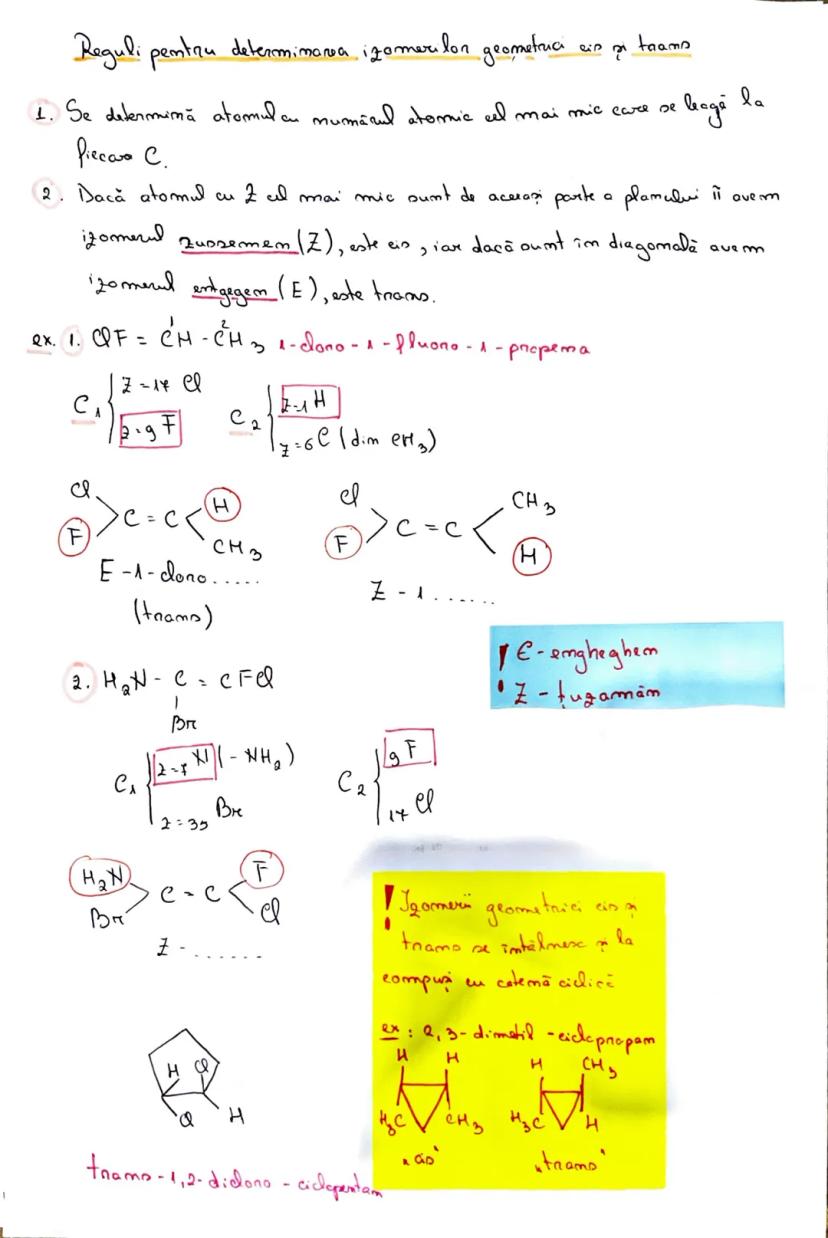 Reguli pentru determinarea izomerilor geometrici cis și trans
1. Se determină atomul cu numărul atomic cel mai mic care se leagă la
fiecare C.
2. Dacă atomul cu Z cel mai mic sunt de aceeași parte a planului îi avem
izomerul zussemem (Z), este cis, iar dacă sunt în diagonală avem
izomerul entgegem (E), este trans.
ex. 1. ClF = C¹H - C²H₃ 1-cloro-1-fluoro-1-propena
C₁ { Z=17 Cl
Z=9 F
C₂ { Z=1 H
Z=6 C (din CH₃)
Cl H
C = C
F CH₃
E-1-cloro.....
(trans)
Cl CH₃
C = C
F H
Z-1......
! E-engheghem
! Z-țuzamăn
2. H₂N - C = CFCl
Br
C₁ { Z=7 N (-NH₂)
Z=35 Br
C₂ { 9 F
17 Cl
H₂N F
C = C
Br Cl
Z-.......
! Izomerii geometrici cis și
trans se întâlnesc și la
compuși cu catenă ciclică
ex: 2,3-dimetil-ciclopropan
H H
H₃C CH₃
„cis"
H CH₃
H₃C H
„trans"
H Cl
Cl H
trans-1,2-dicloro-ciclopentan